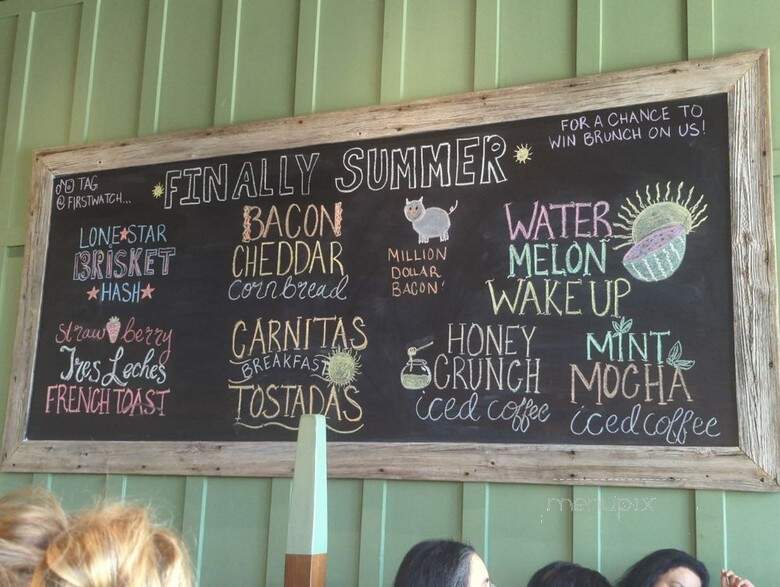 FINALLY SUMMER
TAG
@FIRSTWATCH...
FOR A CHANCE TO
WIN BRUNCH ON US!
LONE STAR
BRISKET
HASH
BACON
CHEDDAR
cornbread
MILLION
DOLLAR
BACON!
WATER
MELON
WAKE UP
strawberry
Tres Leches
FRENCH TOAST
CARNITAS
BREAKFAST
TOSTADAS
HONEY
CRUNCH
iced coffee
MINT
MOCHA
iced coffee
menupix